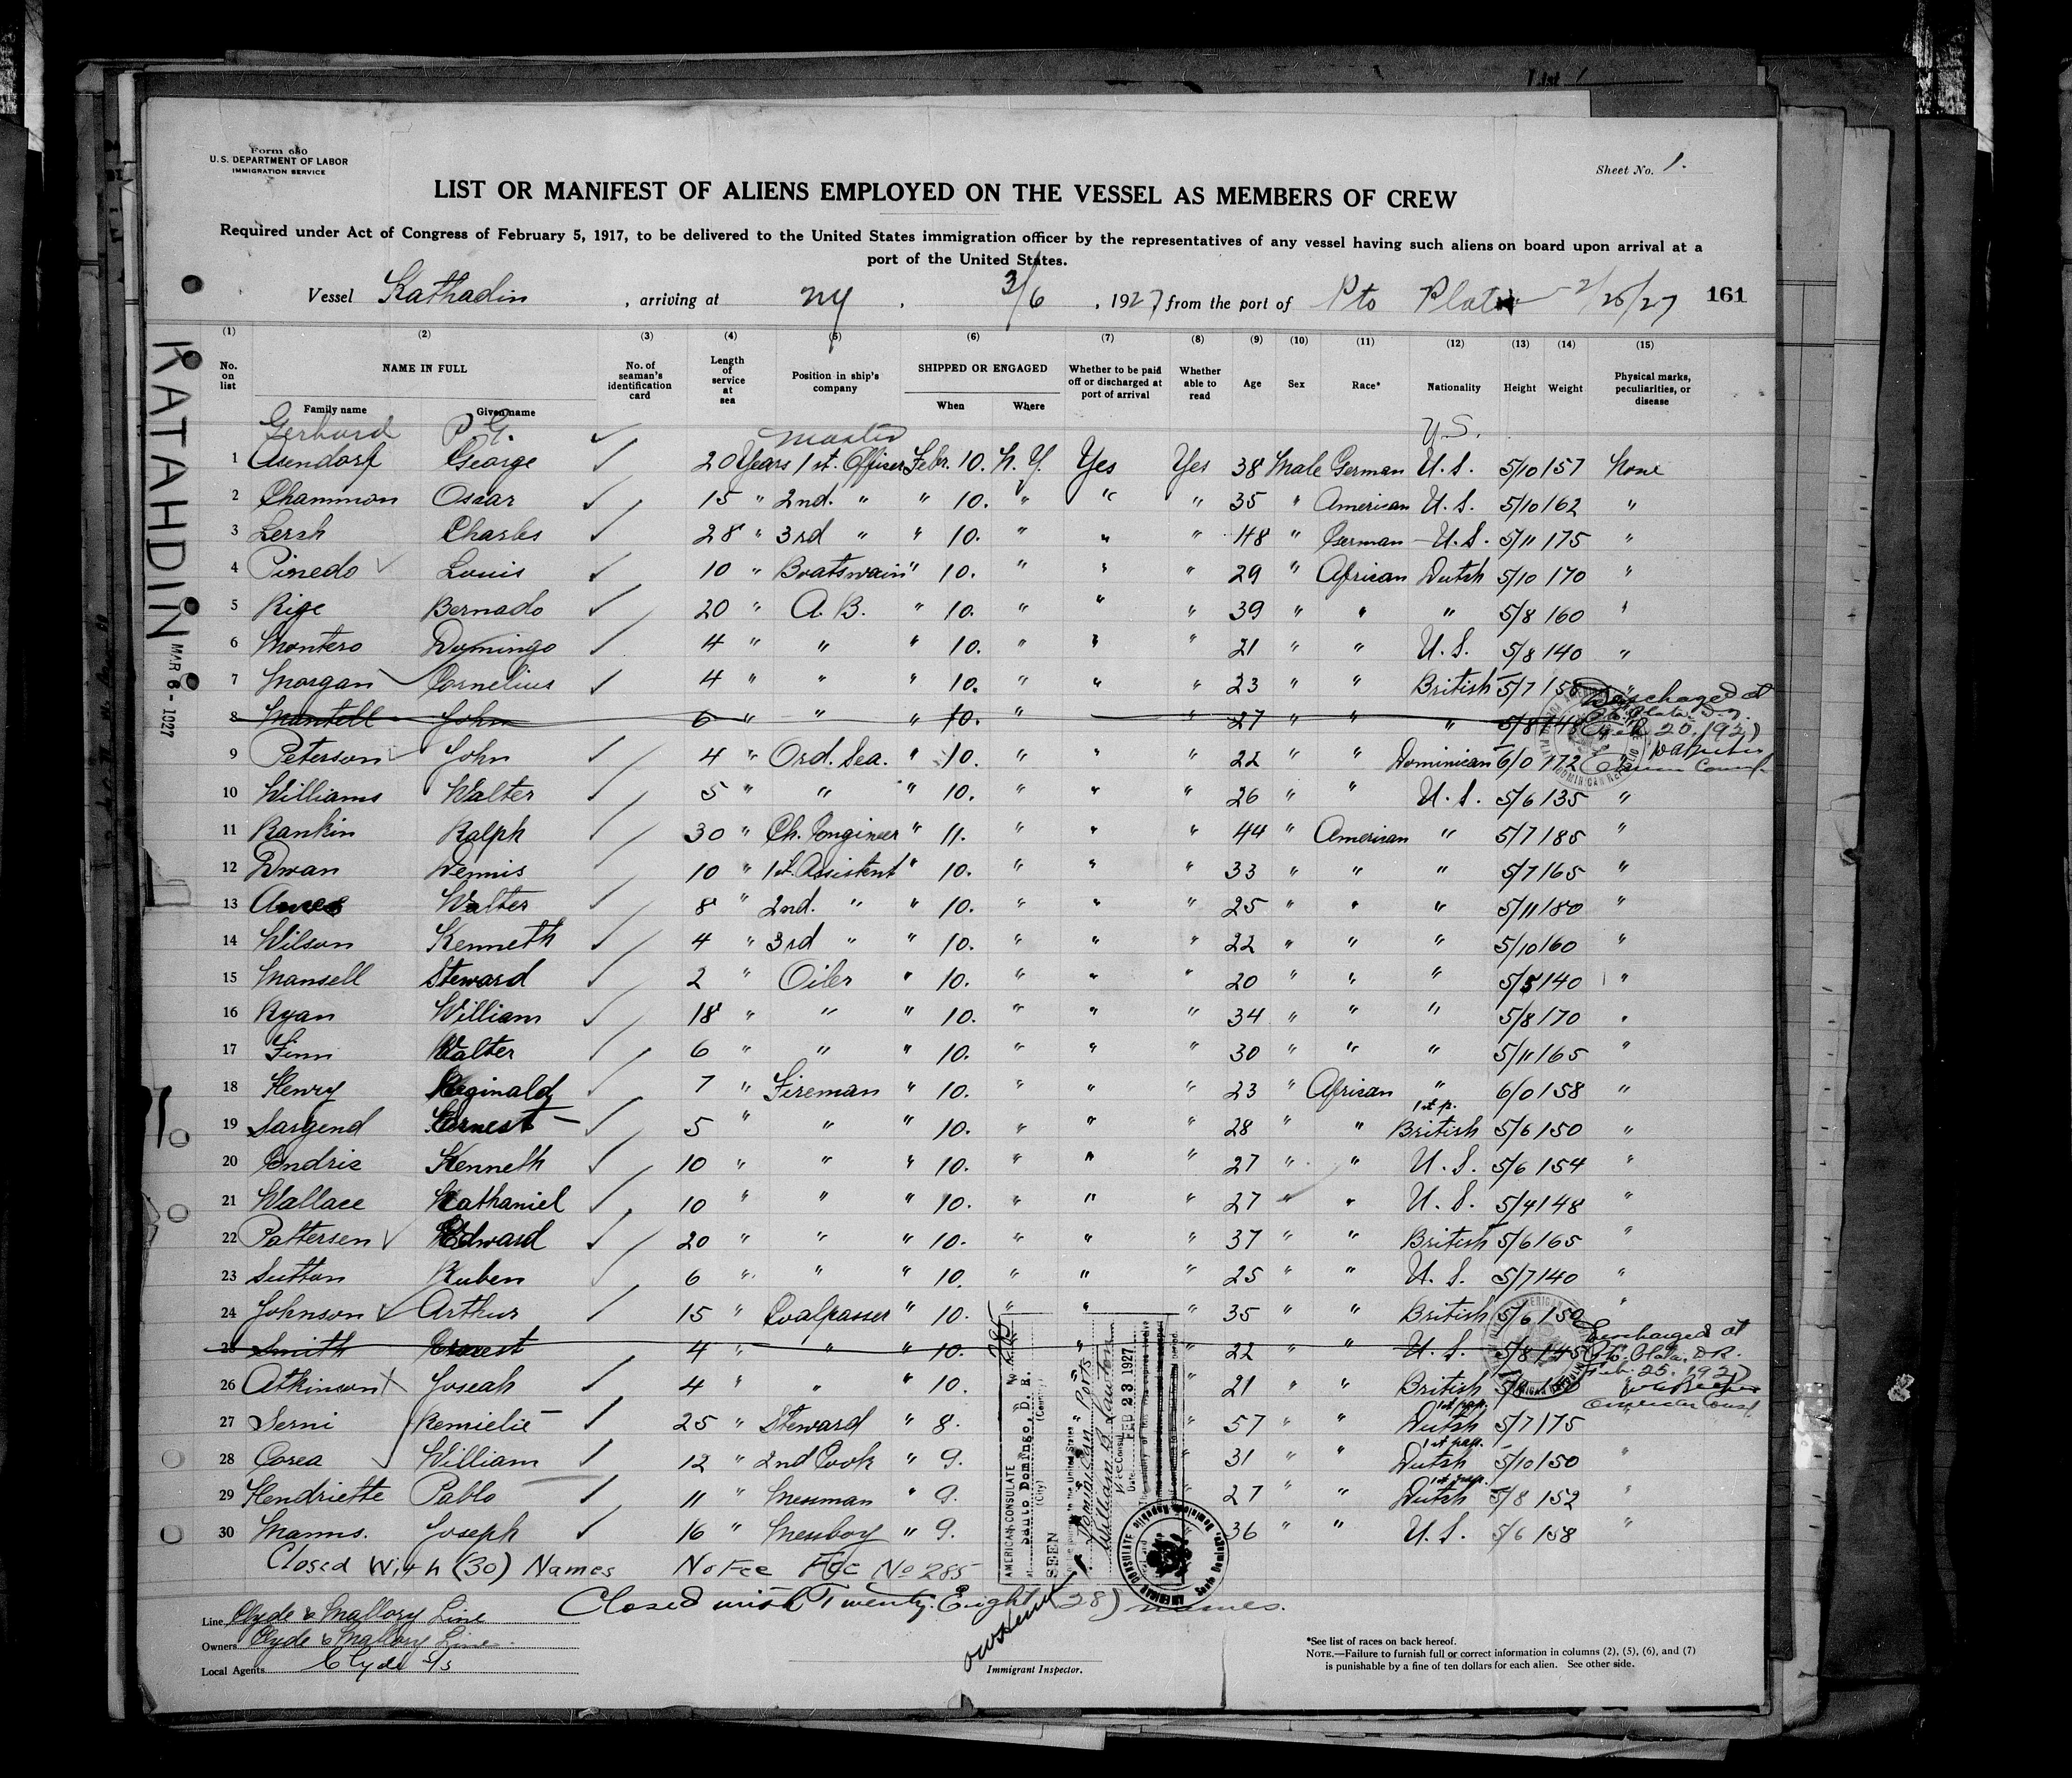 List 1
Form 680
U.S. DEPARTMENT OF LABOR
IMMIGRATION SERVICE
Sheet No. 1.
LIST OR MANIFEST OF ALIENS EMPLOYED ON THE VESSEL AS MEMBERS OF CREW
Required under Act of Congress of February 5, 1917, to be delivered to the United States immigration officer by the representatives of any vessel having such aliens on board upon arrival at a
port of the United States.
Vessel Kathadin, arriving at NY, 3/6, 1927 from the port of Pto Plata 2/25/27 161
KATAHDIN
MAR 6 - 1927
(1) (2) (3) (4) (5) (6) (7) (8) (9) (10) (11) (12) (13) (14) (15)
No. on list NAME IN FULL Family name Given name No. of seaman's identification card Length of service at sea Position in ship's company SHIPPED OR ENGAGED When Where Whether to be paid off or discharged at port of arrival Whether able to read Age Sex Race* Nationality Height Weight Physical marks, peculiarities, or disease
Gerhard P. G. Master U.S.
1 Asendorf George 20 Years 1st. Officer Febr. 10. N. Y. Yes Yes 38 Male German U. S. 5/10 157 None
2 Chammon Oscar 15 " 2nd. " " 10. " " " 35 " American U. S. 5/10 162 "
3 Lersh Charles 28 " 3rd " " 10. " " " 48 " German U. S. 5/11 175 "
4 Pinedo Louis 10 " Boatswain " 10. " " " 29 " African Dutch 5/10 170 "
5 Rige Bernado 20 " A. B. " 10. " " " 39 " " " 5/8 160 "
6 Montero Domingo 4 " " " 10. " " " 21 " " U. S. 5/8 140 "
7 Morgan Cornelius 4 " " " 10. " " " 23 " " British 5/7 158 "
8 Mantell John 6 " " " 10. " " 27 " " " 5/8 148 Descharged at Pto Plata D.R. Feb. 20, 1927
9 Peterson John 4 " Ord. Sea. " 10. " " " 22 " " Dominican 6/0 172
10 Williams Walter 5 " " " 10. " " " 26 " " U. S. 5/6 135 "
11 Rankin Ralph 30 " Ch. Engineer " 11. " " " 44 " American " 5/7 185 "
12 Dwan Dennis 10 " 1st. Assistent " 10. " " " 33 " " " 5/7 165 "
13 Ames Walter 8 " 2nd. " " 10. " " " 25 " " " 5/11 180 "
14 Wilson Kenneth 4 " 3rd " " 10. " " " 22 " " " 5/10 160 "
15 Mansell Steward 2 " Oiler " 10. " " " 20 " " " 5/5 140 "
16 Ryan William 18 " " " 10. " " " 34 " " " 5/8 170 "
17 Finn Walter 6 " " " 10. " " " 30 " " " 5/11 165 "
18 Henry Reginald 7 " Fireman " 10. " " " 23 " African " 6/0 158 "
19 Sargend Ernest 5 " " " 10. " " " 28 " " 1st p. British 5/6 150 "
20 Endric Kenneth 10 " " " 10. " " " 27 " " U. S. 5/6 154 "
21 Wallace Nathaniel 10 " " " 10. " " " 27 " " U. S. 5/4 148 "
22 Pattersen Edward 20 " " " 10. " " " 37 " " British 5/6 165 "
23 Sutton Ruben 6 " " " 10. " " " 25 " " U. S. 5/7 140 "
24 Johnson Arthur 15 " Coalpasser " 10. " " " 35 " " British 5/6 150 "
25 Smith Ernest 4 " " " 10. " " 22 " " U. S. 5/8 145 Descharged at Pto Plata. D R. Feb. 25, 1927 American Consul
26 Atkinson Joseah 4 " " " 10. 21 " " British 5/8
27 Serni Remielie 25 " Steward " 8. " 57 " " 1st pap. Dutch 5/7 175 "
28 Corea William 12 " 2nd Cook " 9. " 31 " " 1st pap. Dutch 5/10 150 "
29 Hendriette Pablo 11 " Messman " 9. " 27 " " 1st pap. Dutch 5/8 152 "
30 Manns. Joseph 16 " Messboy " 9. " 36 " " U. S. 5/6 158 "
AMERICAN CONSULATE
Santo Domingo, D. R.
(City) (Country)
SEEN
Dominican Ports
William B. Lawton
Vice Consul
Date FEB 23 1927
No. 285
AMERICAN CONSULATE Santo Domingo, Dominican Republic
Closed With (30) Names No Fee Fee No 285
Closed with Twenty Eight (28) names.
Line Clyde & Mallory Line
Owners Clyde & Mallory Line
Local Agents Clyde S/S
Immigrant Inspector.
*See list of races on back hereof.
NOTE.—Failure to furnish full or correct information in columns (2), (5), (6), and (7)
is punishable by a fine of ten dollars for each alien. See other side.